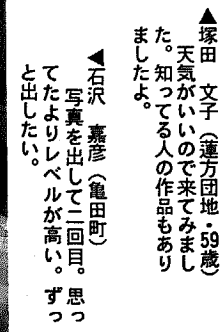 ▲塚田　文子（蓮方団地・59歳）
　天気がいいので来てみまし
た。知ってる人の作品もあり
ましたよ。
◀石沢　嘉彦（亀田町）
　写真を出して二回目。思っ
てたよりレベルが高い。ずっ
と出したい。